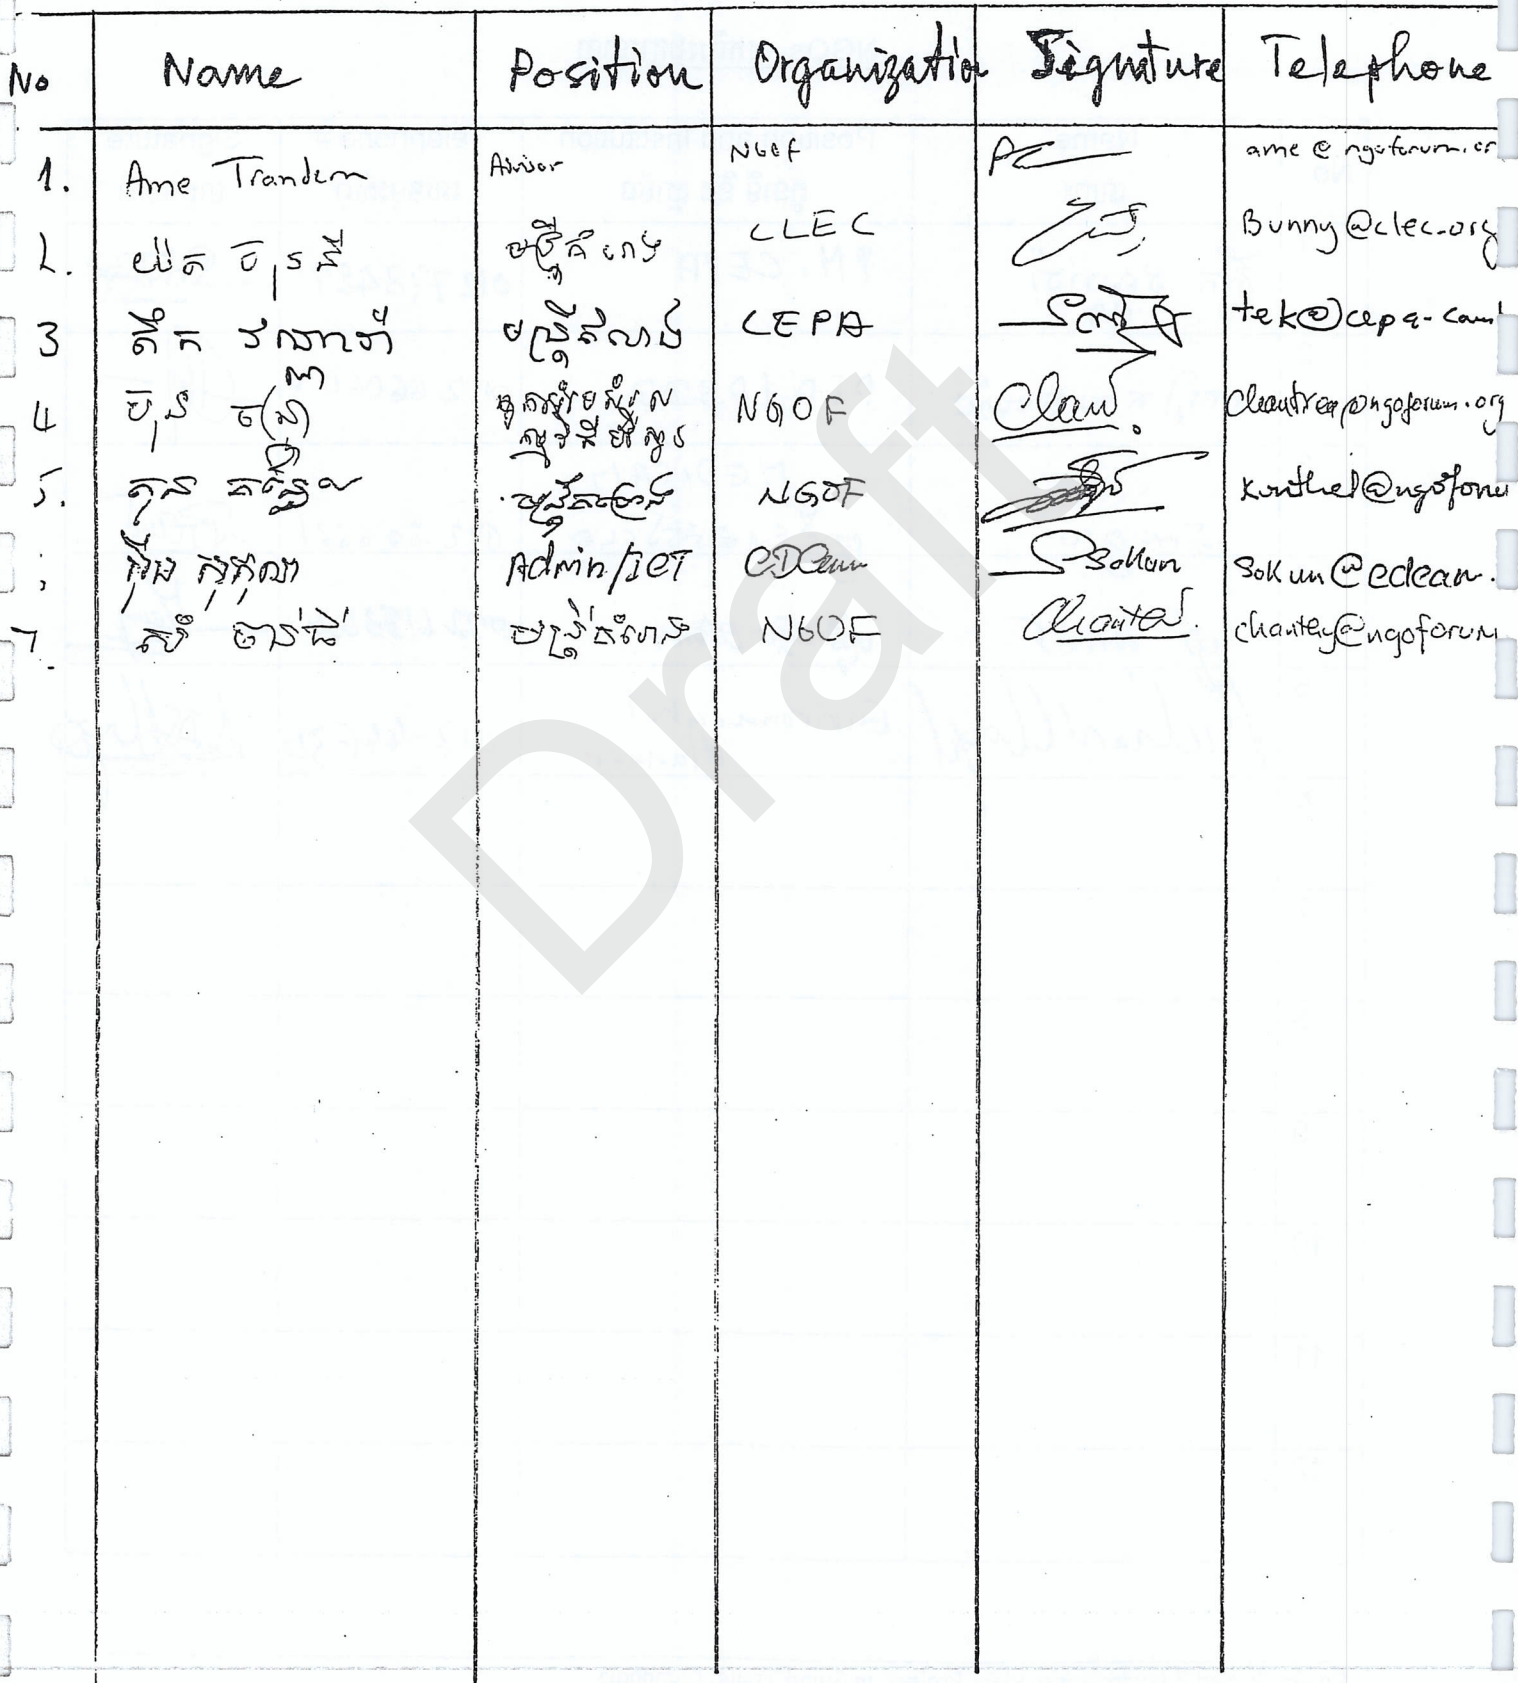 No Name Position Organizatio Signature Telephone
1. Ame Trandem Advisor NGOF ame@ngoforum.or
2. យ៉ត ប៊ុននី CLEC Bunny@clec.org
3 តឹក វណ្ណារ៉ា មន្ត្រីគំរោង CEPA tek@cepa-cam
4 ប៊ុន NGOF Chantrea@ngoforum.org
5. មន្ត្រីគម្រោង NGOF Kunthel@ngoforu
Admin/ICT Sokun Sokun@edcam.
7 ចាន់ធី មន្ត្រីគំរោង NGOF Chanthy chanthy@ngoforum
Draft